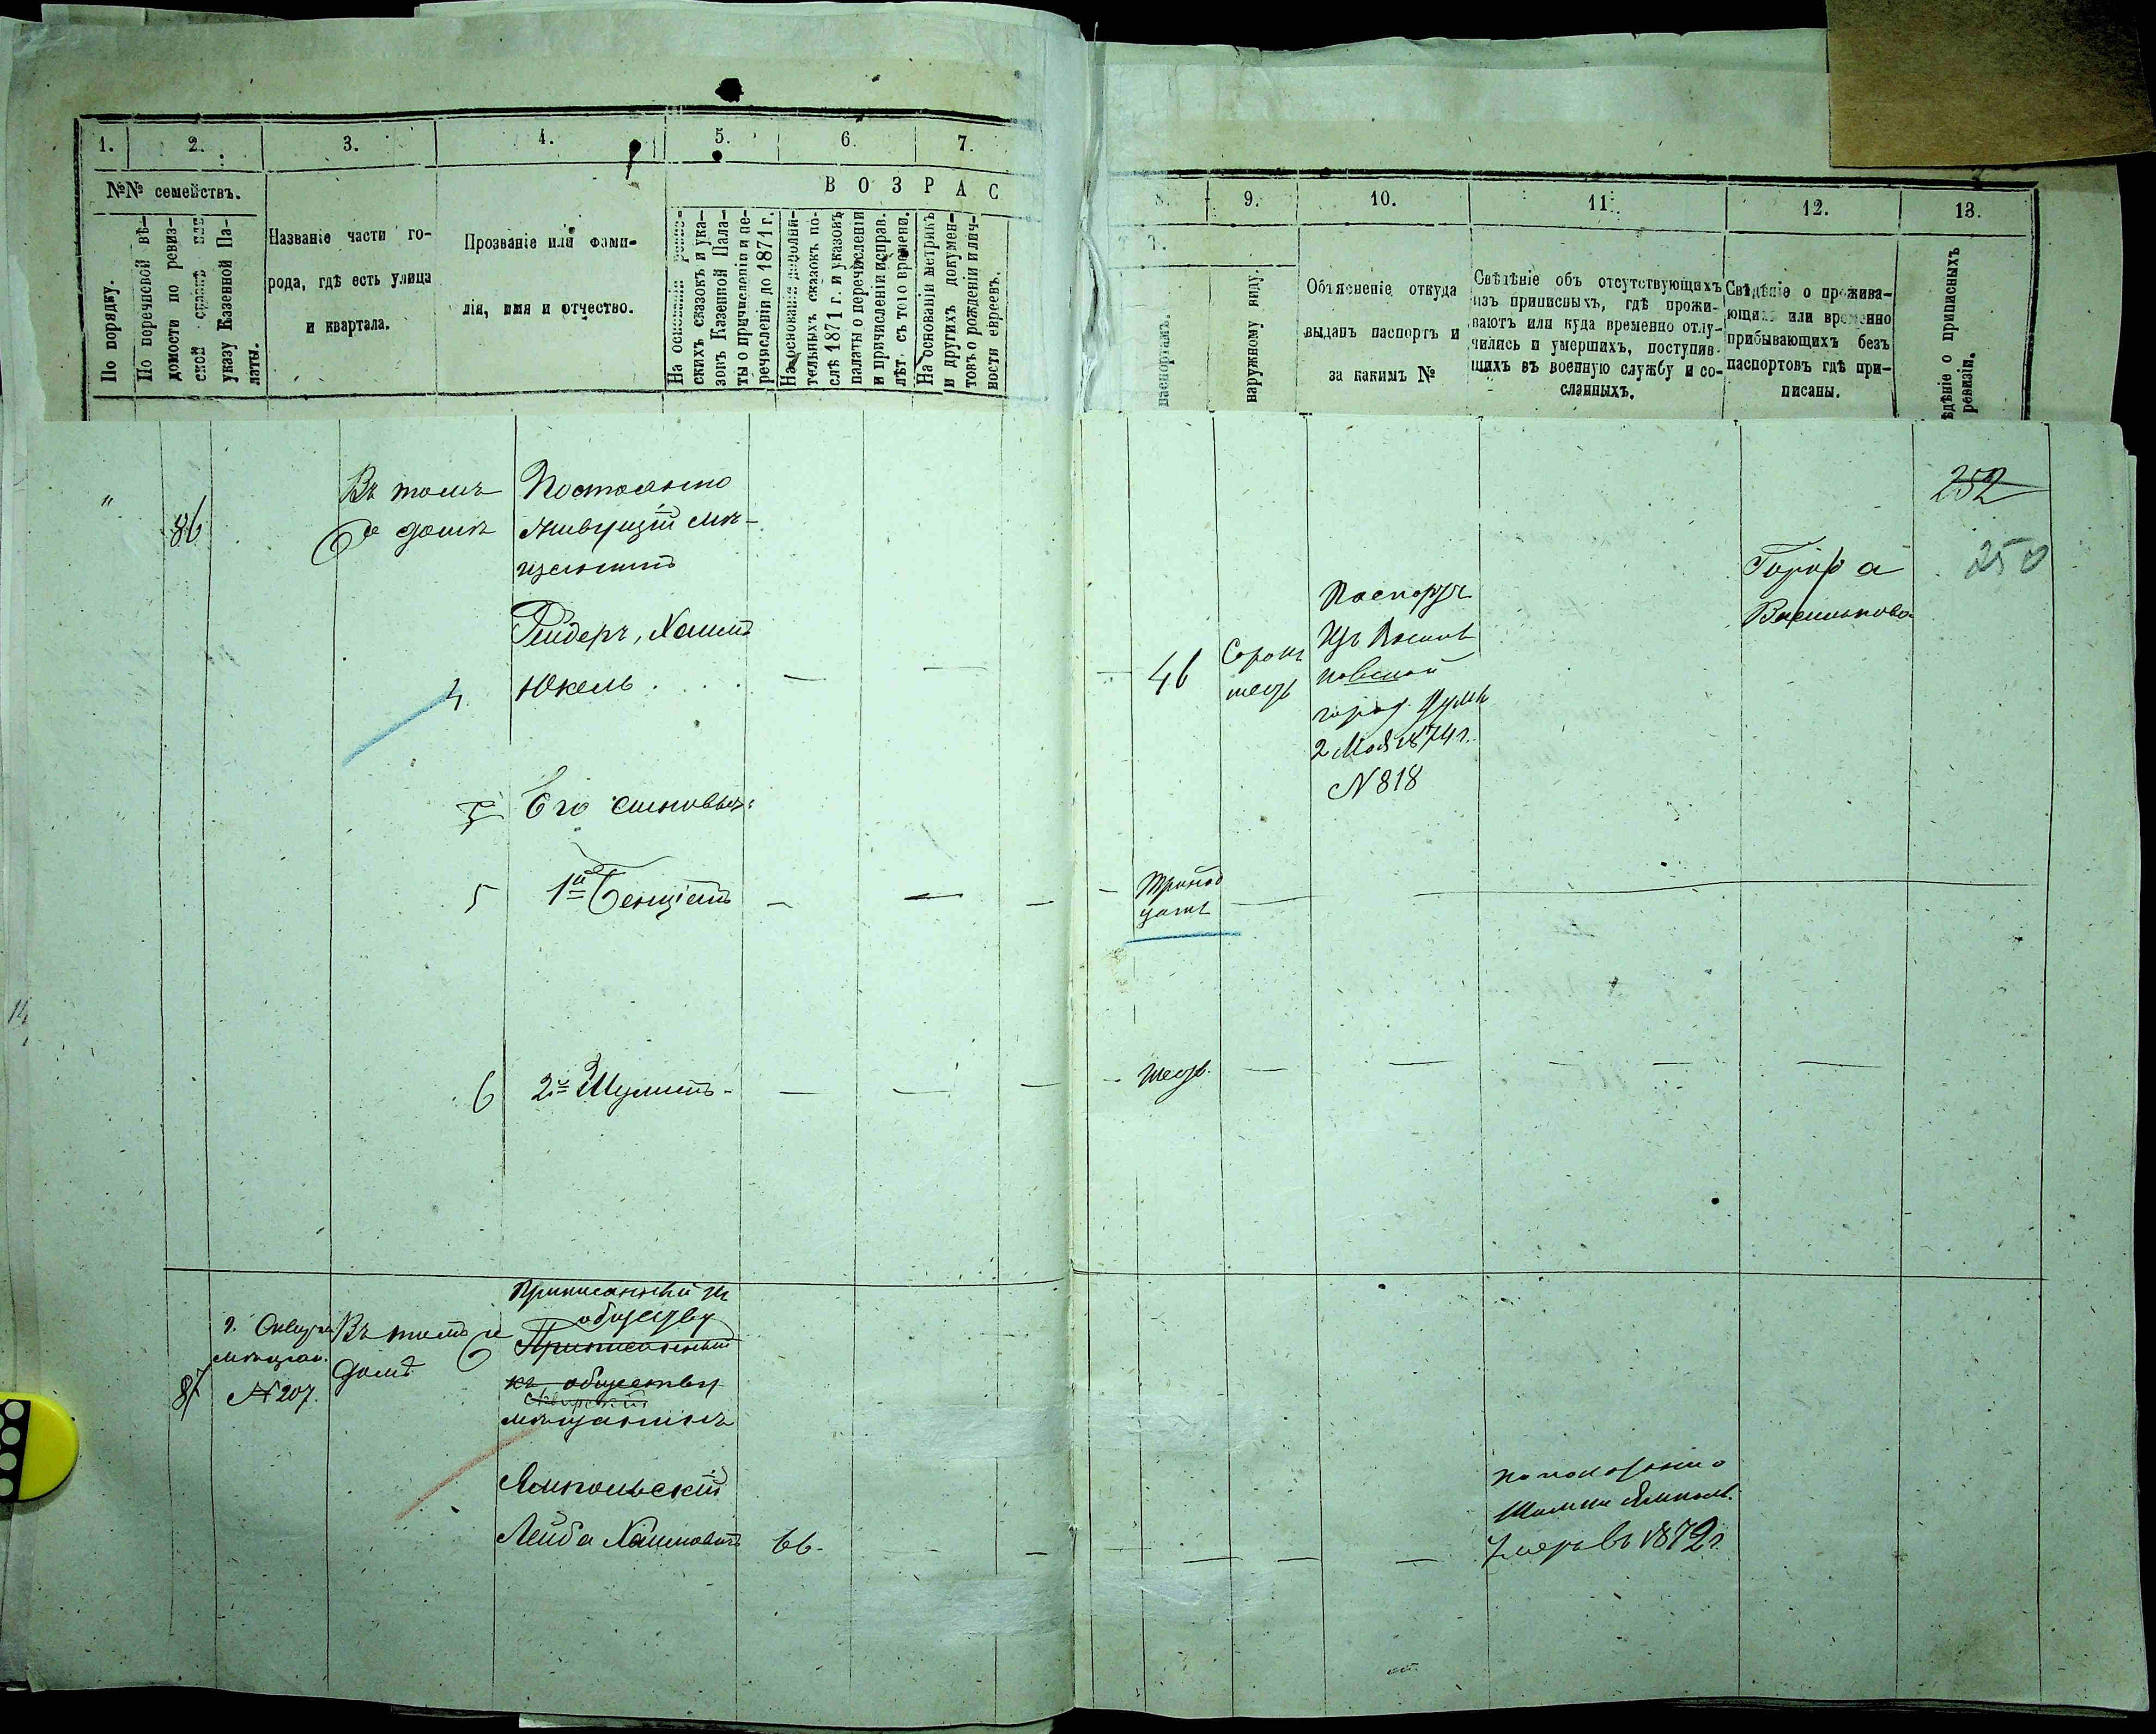 1. 2. 3. 4. 5. 6. 7.
№№ семействъ.
По порядку.
По перечневой вѣ-
домости по ревиз-
ской сказкѣ или
указу Казенной Па-
латы.
Названіе части го-
рода, гдѣ есть улица
и квартала.
Прозваніе или фами-
лія, имя и отчество.
ВОЗРАС
На основаніи ревиз-
скихъ сказокъ и ука-
зокъ Казенной Пала-
ты о причисленіи и пе-
речисленіи до 1871 г.
На основаніи дополни-
тельныхъ сказокъ по-
слѣ 1871 г. и указовъ
палаты о перечисленіи
и причисленіи исправ.
лѣт. съ того времени.
На основаніи метрикъ
и другихъ докумен-
товъ о рожденіи и лич-
ности евреевъ.
8. 9. 10. 11. 12. 13.
Т.
паспортамъ.
наружному виду.
Объясненіе откуда
выданъ паспортъ и
за какимъ №
Свѣтѣніе объ отсутствующихъ
изъ приписныхъ, гдѣ прожи-
ваютъ или куда временно отлу-
чились и умершихъ, поступив-
щихъ въ военную службу и со-
сланныхъ.
Свѣдѣніе о прожива-
ющихъ или временно
прибывающихъ безъ
паспортовъ гдѣ при-
писаны.
ѣдѣніе о приписныхъ
ревизіи.
"
86
Въ томъ
же домѣ
Постоянно
живущій мѣ-
щанинъ
Рейдеръ, Хаимъ
4 Юкель
46
Сорокъ
шесть
Паспортъ
Изъ Василь
ковской
город. Думы
2 Мая 1874 г.
N 818
Города
Василькова
252
250
Его сыновья:
5 1й Бенціонъ
Тринад
цать
6 2й Шулимъ
шесть.
14
87
г. Сквира
мѣщан.
N 207.
Въ томъ же
домѣ
Приписанный къ
обществу
Приписанный
къ обществу
Сквирскій
мѣщанинъ
Ямпольскій
Лейба Хаимовичъ 66.
по показанію
Шулима Ямполь.
Умеръ въ 1872 г.